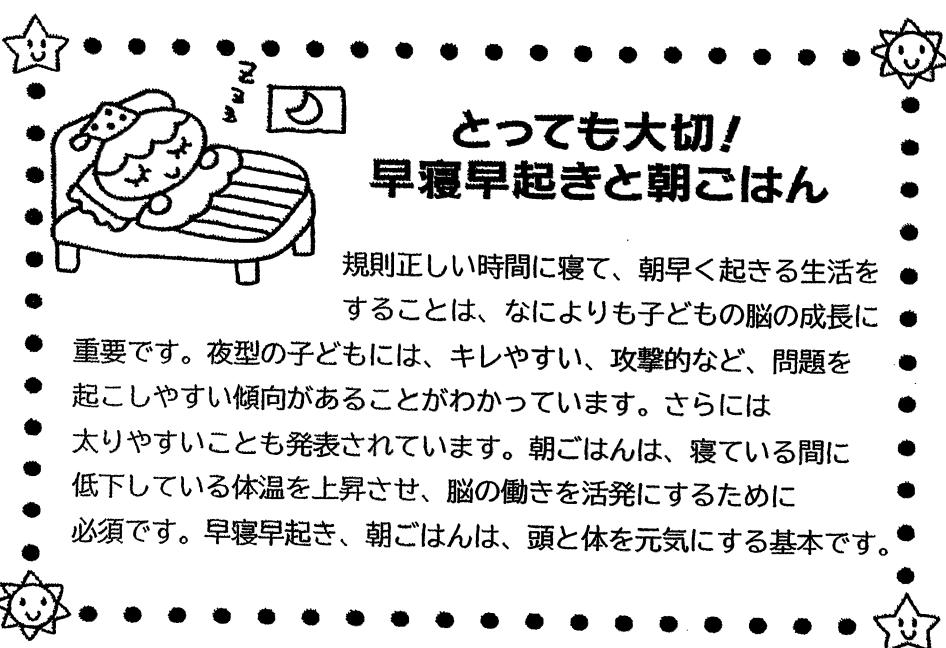 とっても大切！
早寝早起きと朝ごはん
規則正しい時間に寝て、朝早く起きる生活を
することは、なによりも子どもの脳の成長に
重要です。夜型の子どもには、キレやすい、攻撃的など、問題を
起こしやすい傾向があることがわかっています。さらには
太りやすいことも発表されています。朝ごはんは、寝ている間に
低下している体温を上昇させ、脳の働きを活発にするために
必須です。早寝早起き、朝ごはんは、頭と体を元気にする基本です。